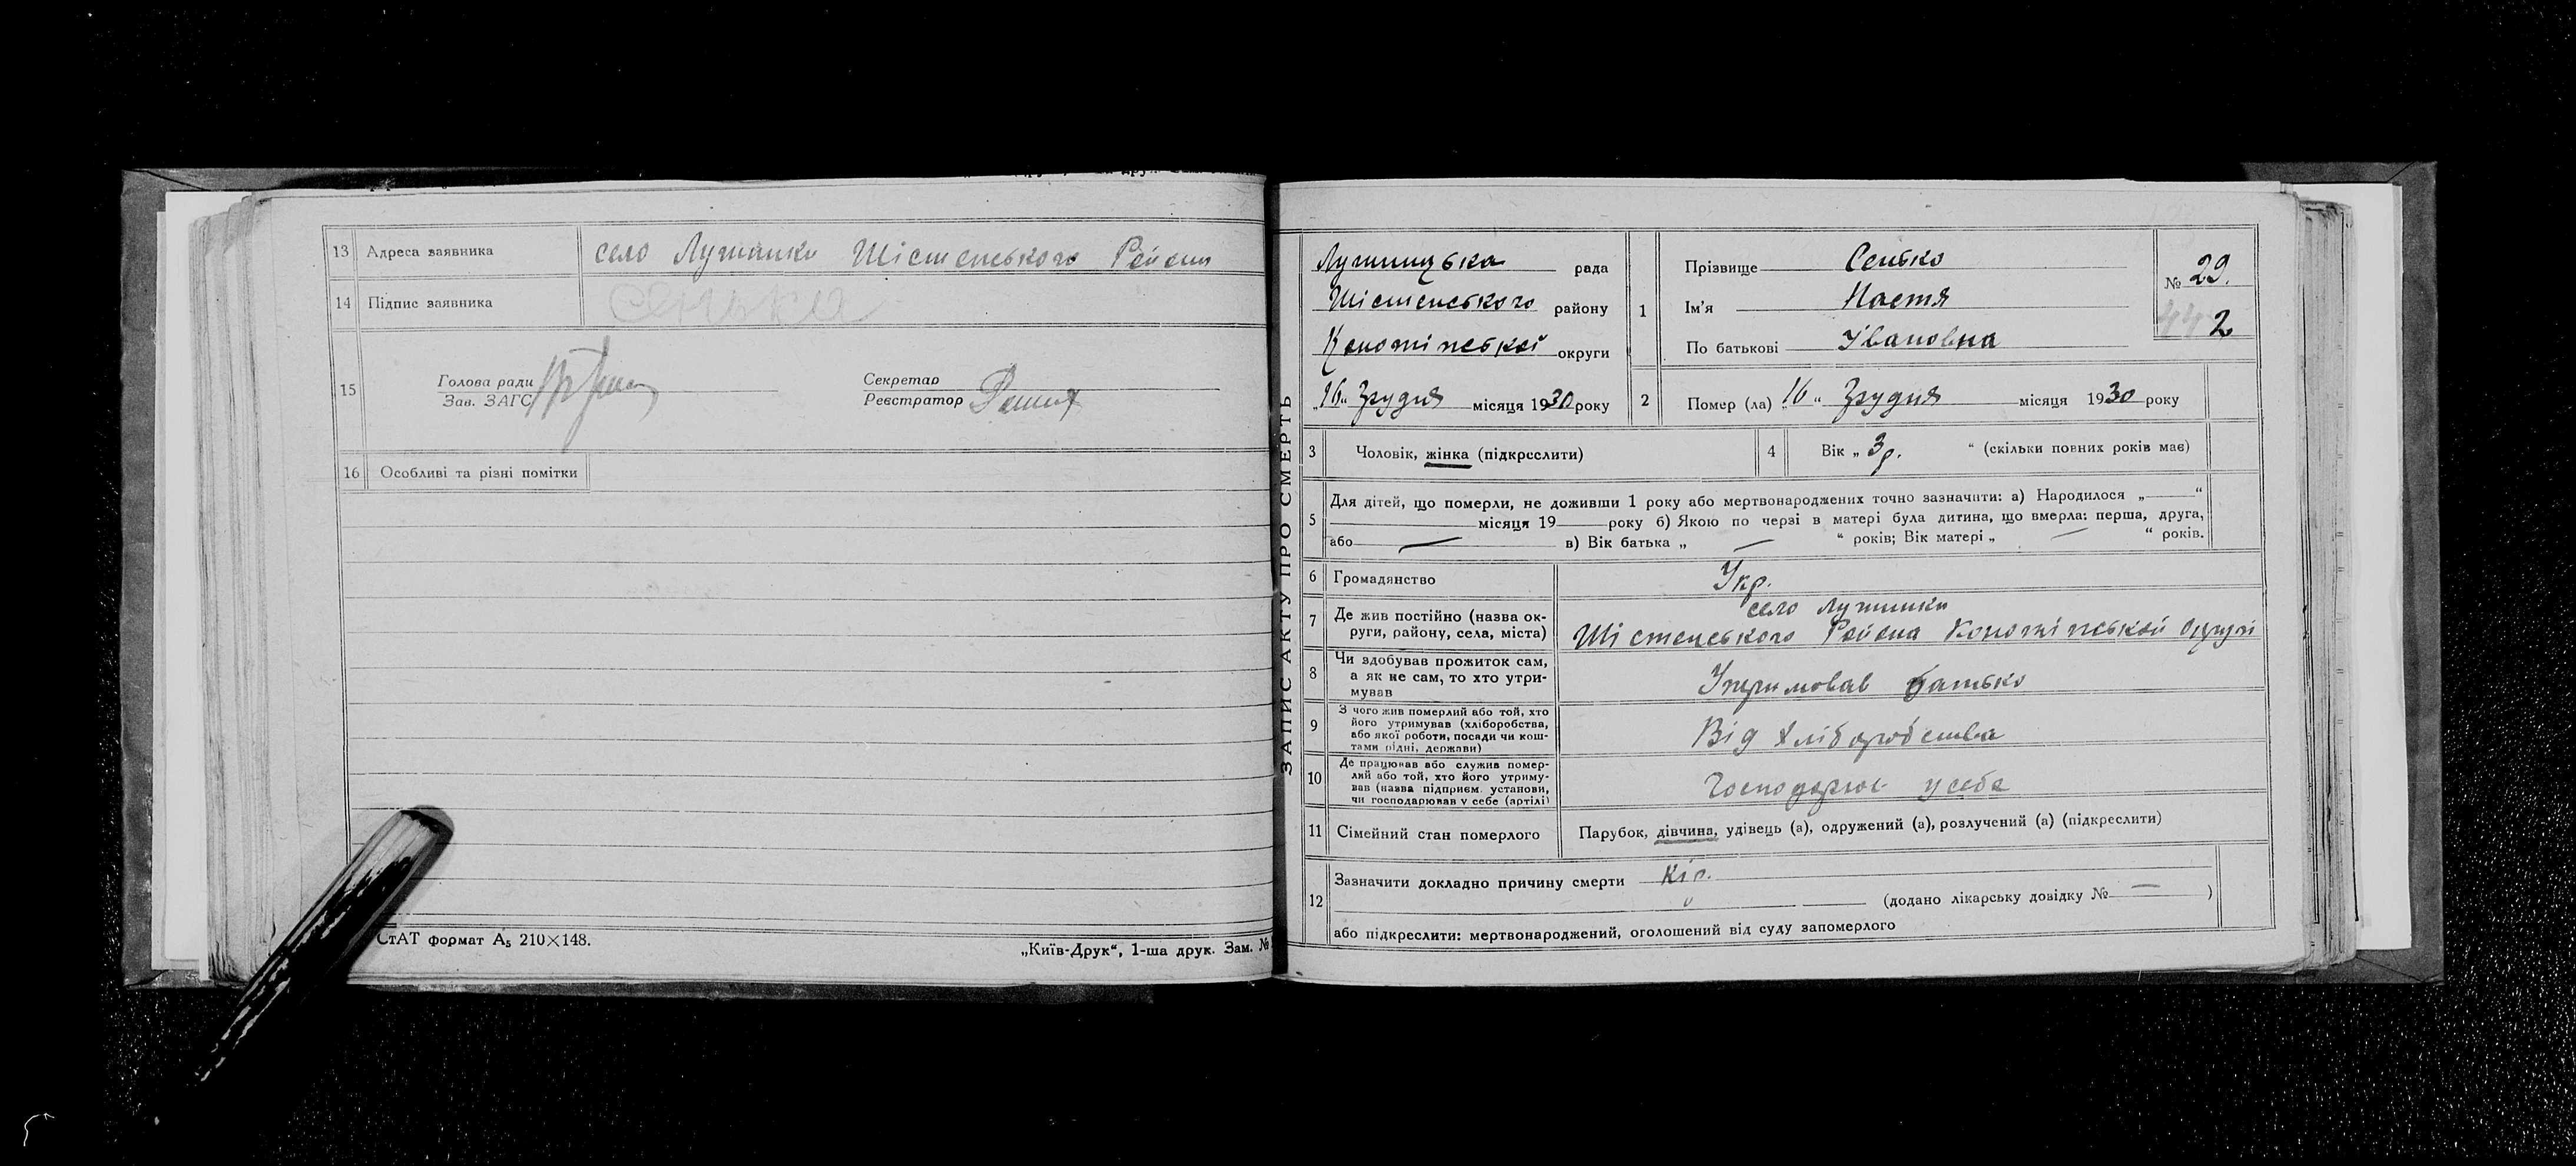 13 Адреса заявника село Лушники Шістенського Району
14 Підпис заявника Сенька
15
Голова ради
Зав. ЗАГС
Секретар
Реєстратор
16 Особливі та різні помітки
СтАТ формат А₅ 210×148.
„Київ-Друк“, 1-ша друк. Зам. №
ЗАПИС АКТУ ПРО СМЕРТЬ
рада
Шістенського району
Конотіпської округи
„16“ Згудня місяця 1930 року
1
Прізвище Сенько
Ім'я Настя
По батькові Івановна
№ 29.
442
2 Помер (ла) „16“ Згудня місяця 1930 року
3 Чоловік, жінка (підкреслити)
4 Вік „3р.“ (скільки повних років має)
5 Для дітей, що померли, не доживши 1 року або мертвонароджених точно зазначити: а) Народилося „—“
місяця 19 року б) Якою по черзі в матері була дитина, що вмерла: перша, друга,
або — в) Вік батька „—“ років; Вік матері „—“ років.
6 Громадянство Укр.
село Лушники
7 Де жив постійно (назва ок-
руги, району, села, міста) Шістенського Района Конотіпськой округи
8 Чи здобував прожиток сам,
а як не сам, то хто утри-
мував Утримовав батько
9 З чого жив померлий або той, хто
його утримував (хліборобства,
або якої роботи, посади чи кош-
тами рідні, держави) Від хліборобства
10 Де працював або служив помер-
лий або той, хто його утриму-
вав (назва підприєм. установи,
чи господарював у себе (артілі) у себе
11 Сімейний стан померлого Парубок, дівчина, удівець (а), одружений (а), розлучений (а) (підкреслити)
12 Зазначити докладно причину смерти Кір.
(додано лікарську довідку № — )
або підкреслити: мертвонароджений, оголошений від суду запомерлого